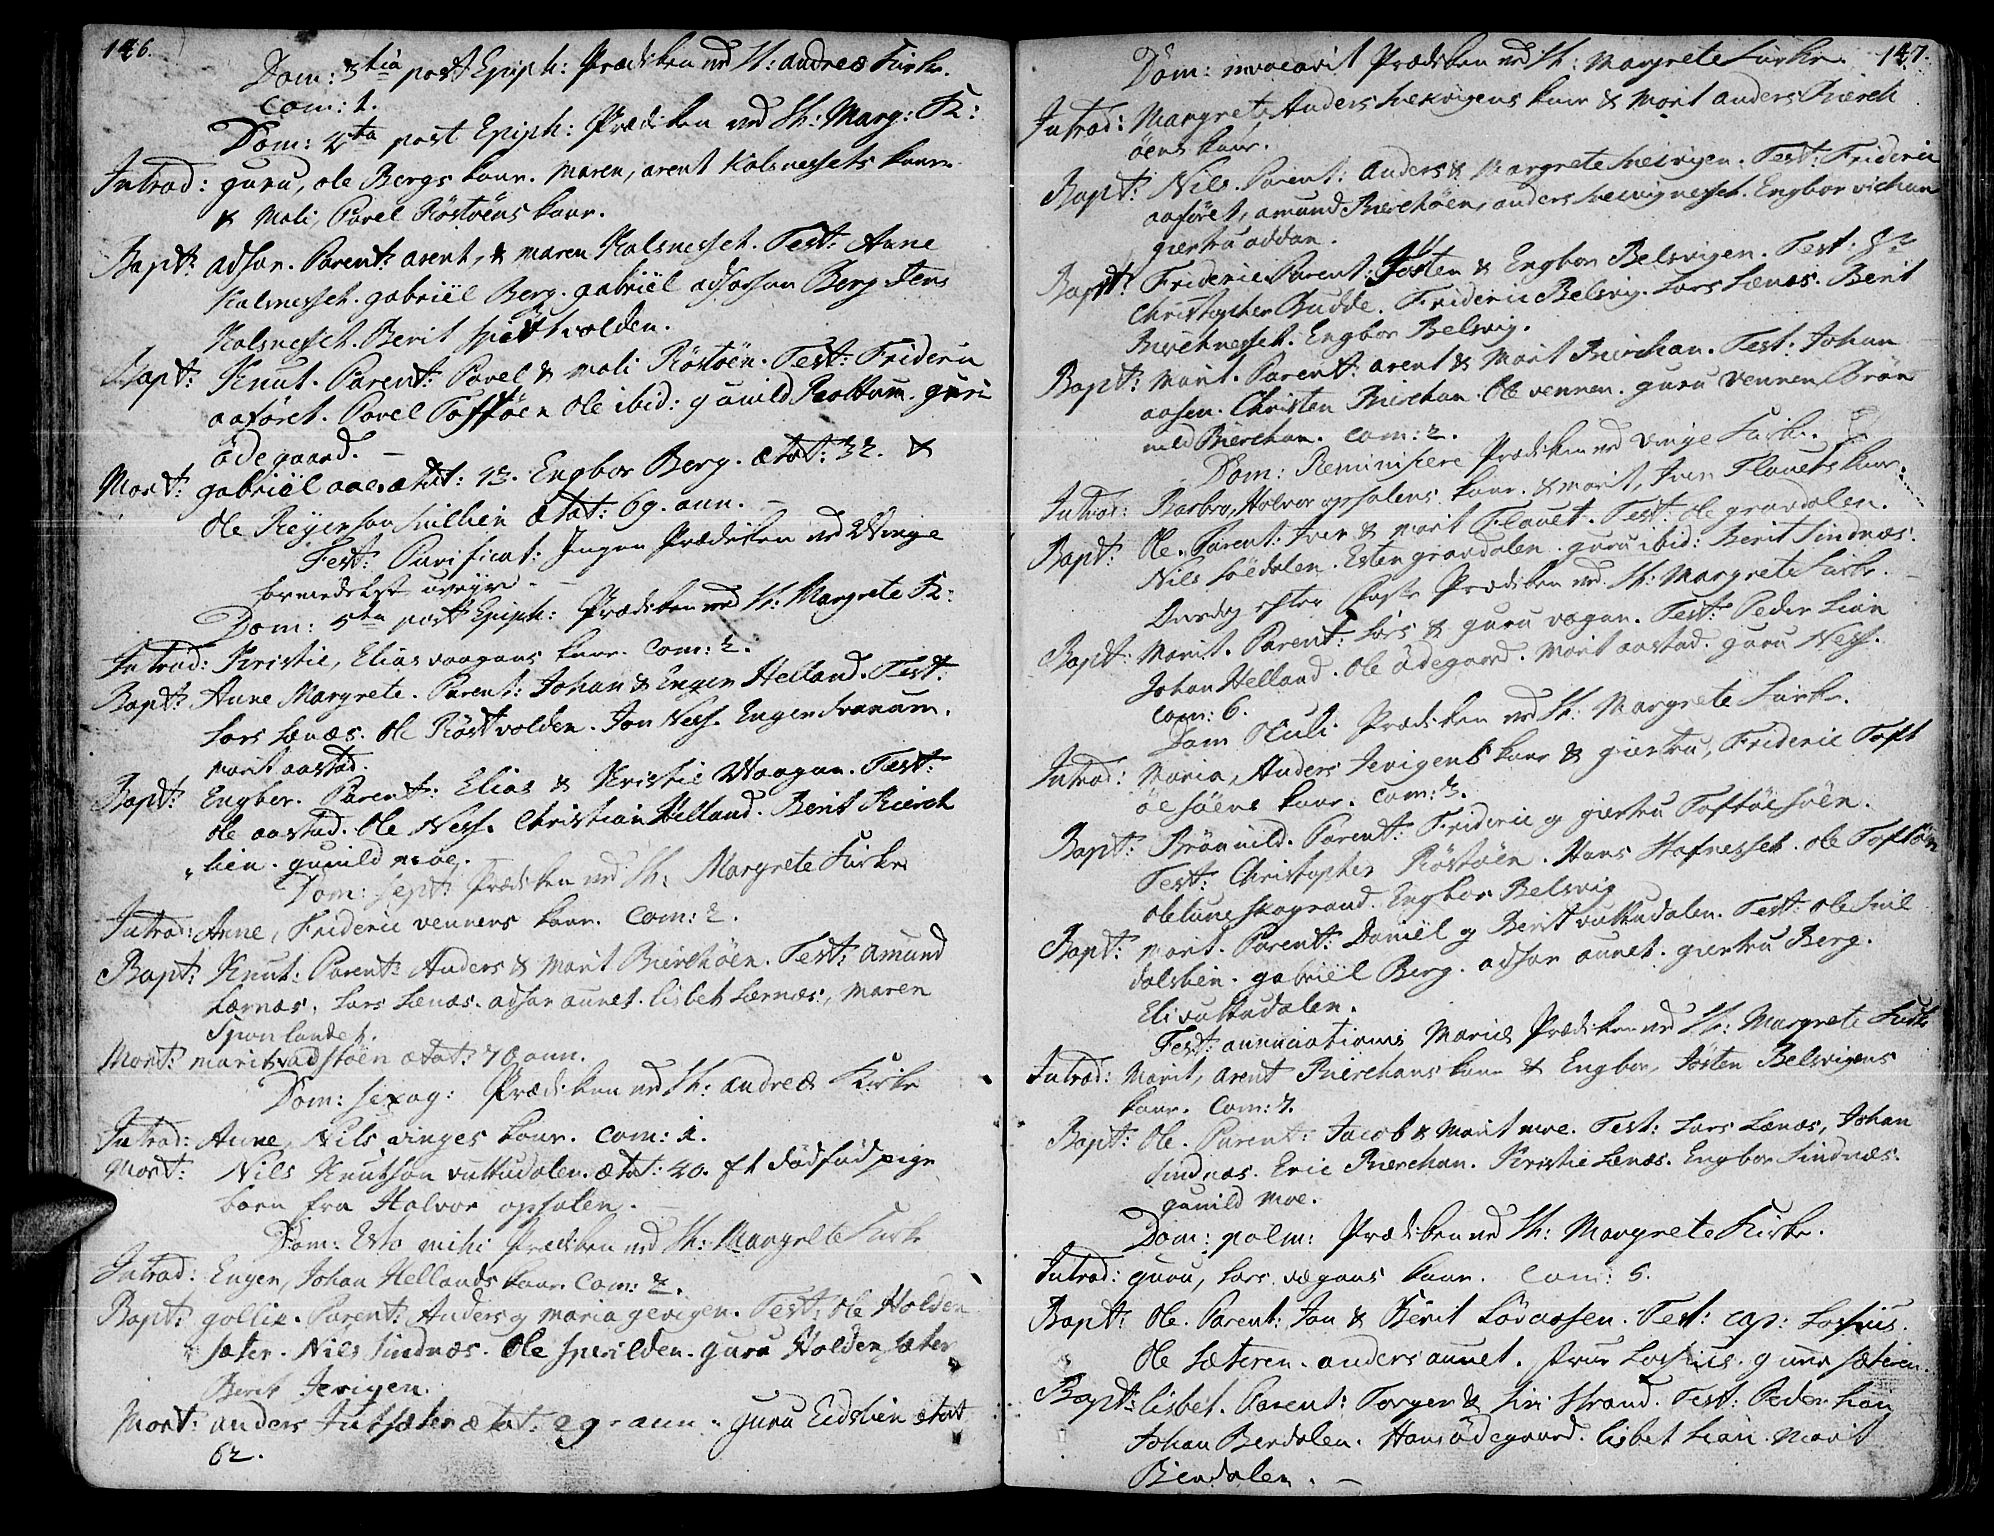 146.
Dom: 3tia post Epiph: Prædiken ved St: Andreæ Kirke.
Com: 1.
Dom: 4ta post Epiph: Prædiken ved St: Marg: K:
Introd: guru, ole Bergs kone. Maren, arent Kalsnessets kone
& Mali, Povel Röstöens kone.
Bapt: adsor. Parent: arent, & maren Kalsnesset. Test: Anne
Kalsnesset. gabriël Berg. gabriël Berg Jens
Kalsnesset. Berit
Bapt: Knut. Parent: Povel & mali Röstöen. Test: Frideric
aaföret. Povel Toftöen ole ibid: gunild guri
ödegaard. –
Mort: gabriël ætat: 13. Engbor Berg. ætat: 32. &
Ole ætat: 69. ann. –
Fest: Purificat: Ingen Prædiken ved Winge
formedelst uveyr. –
Dom: 5ta post Epiph: Prædiken ved St: Margrete K:
Introd: Kristie, Elias vaagans kone. Com: 2.
Bapt: Anne Margrete. Parent: Johan & Engen Helland. Test:
Lars Lænæs. Ole Röstvolden. Jon Ness. Engen
marit aastad.
Bapt: Engber. Parent: Elias & Kristie Waagan. Test:
Ole aastad. Ole Ness. Christian Helland. Berit Bierch
lien. gunild moe.
Dom: Sept: Prædiken ved St: Margrete Kirke
Introd: Anne, Frideric vennens kone. Com: 2.
Bapt: Knut: Parent: Anders & Marit Bierchöen. Test: Amund
Lernæs. Lars Lænæs. adsor aunet. lisbet Lernæs, Maren
Mort: marit ætat: 70 ann.
Dom: Sexag: Prædiken ved St: andreæ Kirke
Introd: Anne, Nils vinges kone. Com: 1.
Mort: Nils Knutson vuttudalen. ætat: 20. Et dödföd pige
barn fra Halvor opsalen. –
Dom: Esto mihi Prædiken ved St: Margrete Kirke
Introd: Engen, Johan Hellands kone Com: 2.
Bapt: gollie. Parent: Anders og maria gevigen. Test: Ole Holden
sæter. Nils Sindnæs. Ole guru Holden sæter
Berit Jevigen.
Mort: anders ætat: 29 ann. guru Eidslien ætat
62.
147.
Dom: invocavit Prædiken ved St: Margrete Kirke.
Introd: Margrete, Anders kone & Marit anders Bierch
öens kone.
Bapt: Nils. Parent: Anders & Margrete Test: Frideric
aaföret, amund Bierchöen, anders Engbor vichan
giertru oddan.
Bapt: Frideric Parent: Jösten & Engbor Belsvigen. Test: Hr
Christopher Budde. Frideric Belsvig. Lars Lænæs. Berit
Bierchnesset. Engbor Belsvig.
Bapt: Marit. Parent: arent & Marit Bierchan. Test: Johan
aasen. Christen Bierchan. Ole vennen. guru vennen Brön
nild Bierchan. Com: 2.
Dom: Reminiscere Prædiken ved vinge Kirke.
Introd: Barbro, Halvor opsalens kone. & marit, Iver Flauets kone.
Bapt: Ole. Parent: Iver & Marit Flauet. Test: Ole gravdalen.
Nils Esten gravdalen. guru ibid: Berit Sindnæs.
Onsdag efter Prædiken ved St: Margrete Kirke. –
Bapt: Marit. Parent: Lars & guru vægan. Test: Peder Lian
Johan Helland. Ole ödegaard. Marit aastad. guru Ness.
Com: 6.
Dom Oculi Prædiken ved St: Margrete Kirke.
Introd: Maria, Anders Jevigens kone & giertru, Frideric Toft
öesöens kone. Com: 3.
Bapt: Brönnild. Parent: Frideric og giertru Toftöesöen.
Test: Christopher Röstöen. Hans Hafnesset. ole Toftöen
Engbor Belsvig
Bapt: marit. Parent: Daniël og Berit vuttudalen. Test: ole
dalslien. gabriël Berg. adsor aunet. giertru Berg.
Eli vuttudalen.
Fest: annunciationis Mariæ Prædiken ved St: Margrete Kirk
Introd: Marit, arent Bierchans kone & Engbor, Jösten Belsvigens
kone. Com: 7.
Bapt: Ole. Parent: Jacob & Marit moe. Test: Lars Lænæs, Johan
Sindnæs. Eric Bierchan. Kristie Lænæs. Engbor Sindnæs.
gunild moe.
Dom: palm: Prædiken ved St: Margrete Kirke.
Introd: guru, Lars vægans kone. Com: 5.
Bapt: Ole. Parent: Jon & Berit Lövaasen. Test: Cap: Lossius.
Ole Sæteren. anders aunet. frue Lossius. guru sæteren.
Bapt: lisbet. Parent: Torger & siri Strand. Test: Peder Lian
Johan Berdalen. Hans ödegaard. lisbet Lian. Marit
Berdalen. –